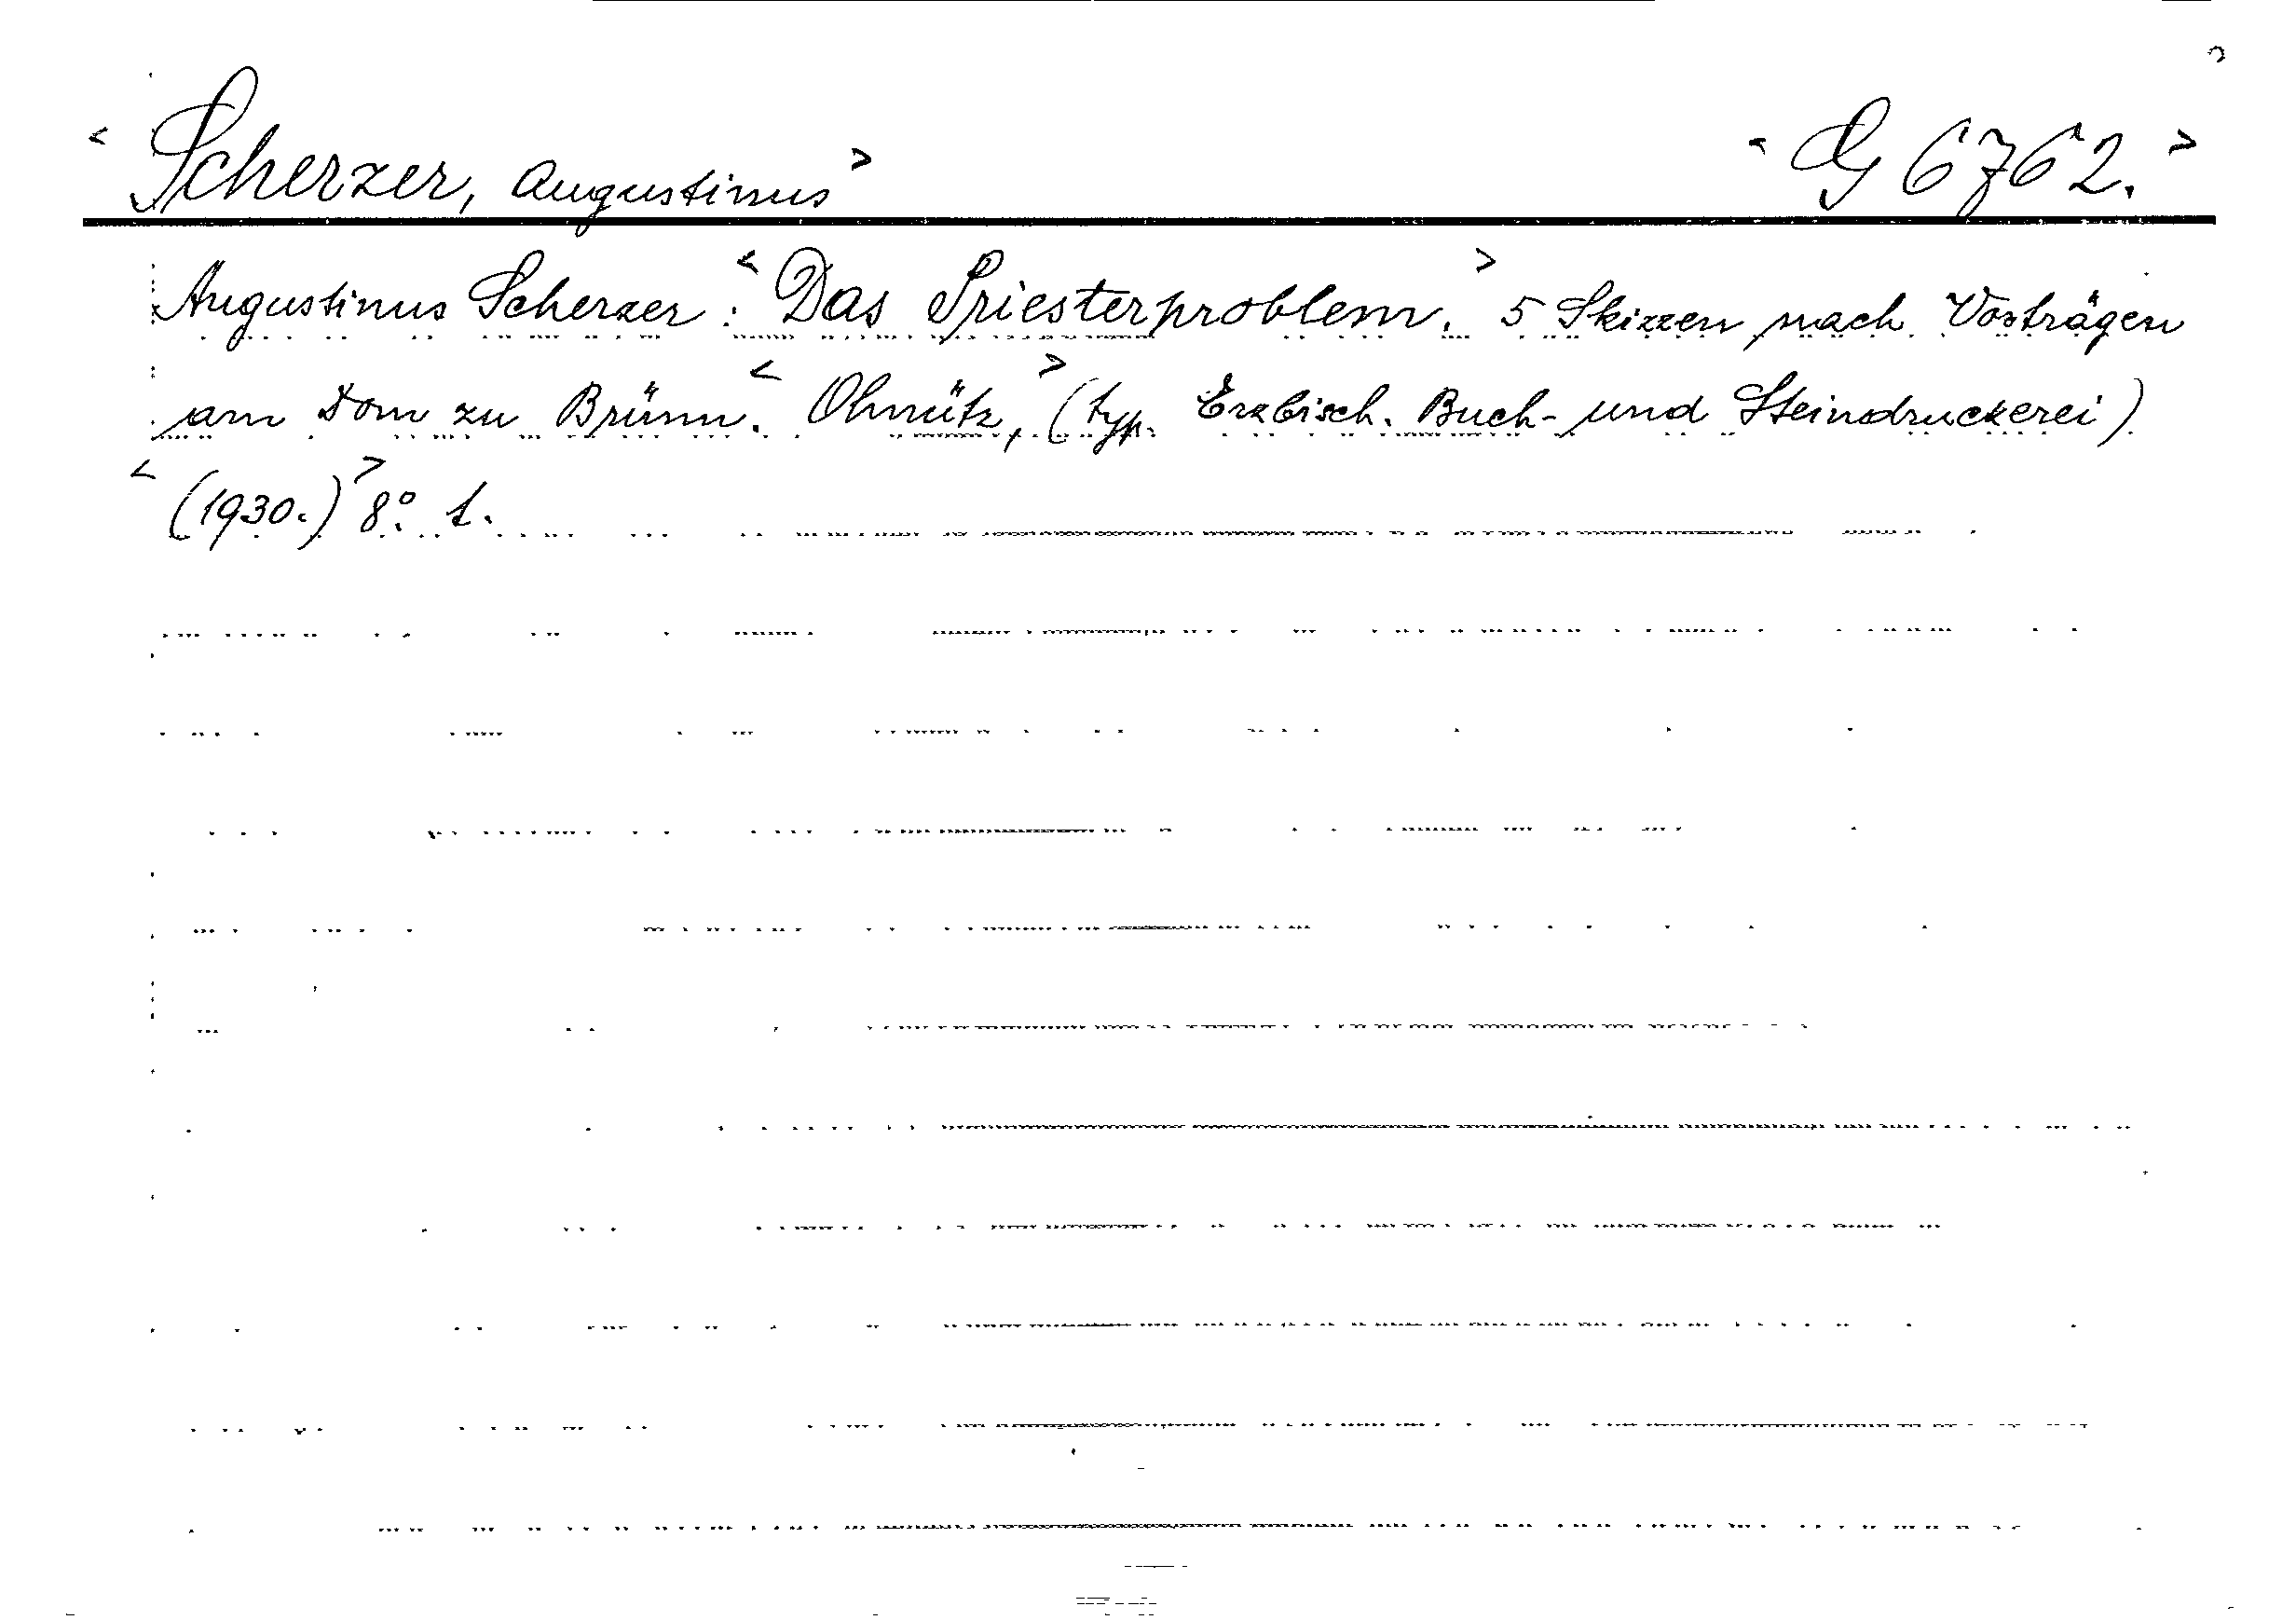 < Scherzer, Augustinus > < G 6762. >
Augustinus Scherzer: < Das Priesterproblem. > 5 Skizzen nach Vorträgen
am Dom zu Brünn. < Olmütz, > (typ. Erzbisch. Buch- und Steindruckerei)
< (1930.) > 8°. 1.